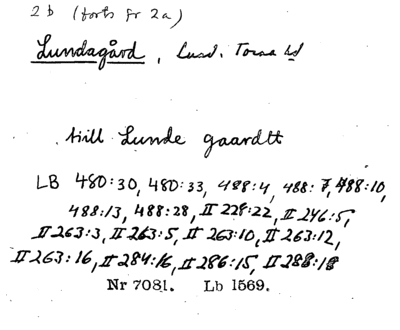 2b (forts fr 2a)
Lundagård, Lund. Torna hd
till Lunde gaardtt
LB 480:30, 480:33, 488:4, 488:7, 488:10,
488:13, 488:28, II 228:22, II 246:5,
II 263:3, II 263:5, II 263:10, II 263:12,
II 263:16, II 284:16, II 286:15, II 288:18
Nr 7081. Lb 1569.